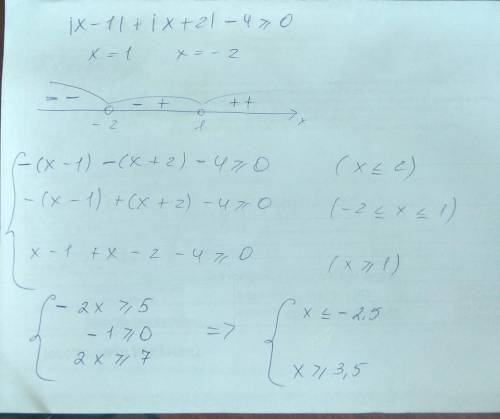 |x-1| + |x+2| - 4 ⩾ 0
x = 1 x = -2
= - - + + +
-2 1 x
-(x-1) -(x+2) - 4 ⩾ 0 (x ≤ 2)
-(x-1) +(x+2) - 4 ⩾ 0 (-2 ≤ x ≤ 1)
x - 1 + x - 2 - 4 ⩾ 0 (x ⩾ 1)
- 2x ⩾ 5 x ≤ -2,5
-1 ⩾ 0 =>
2x ⩾ 7 x ⩾ 3,5